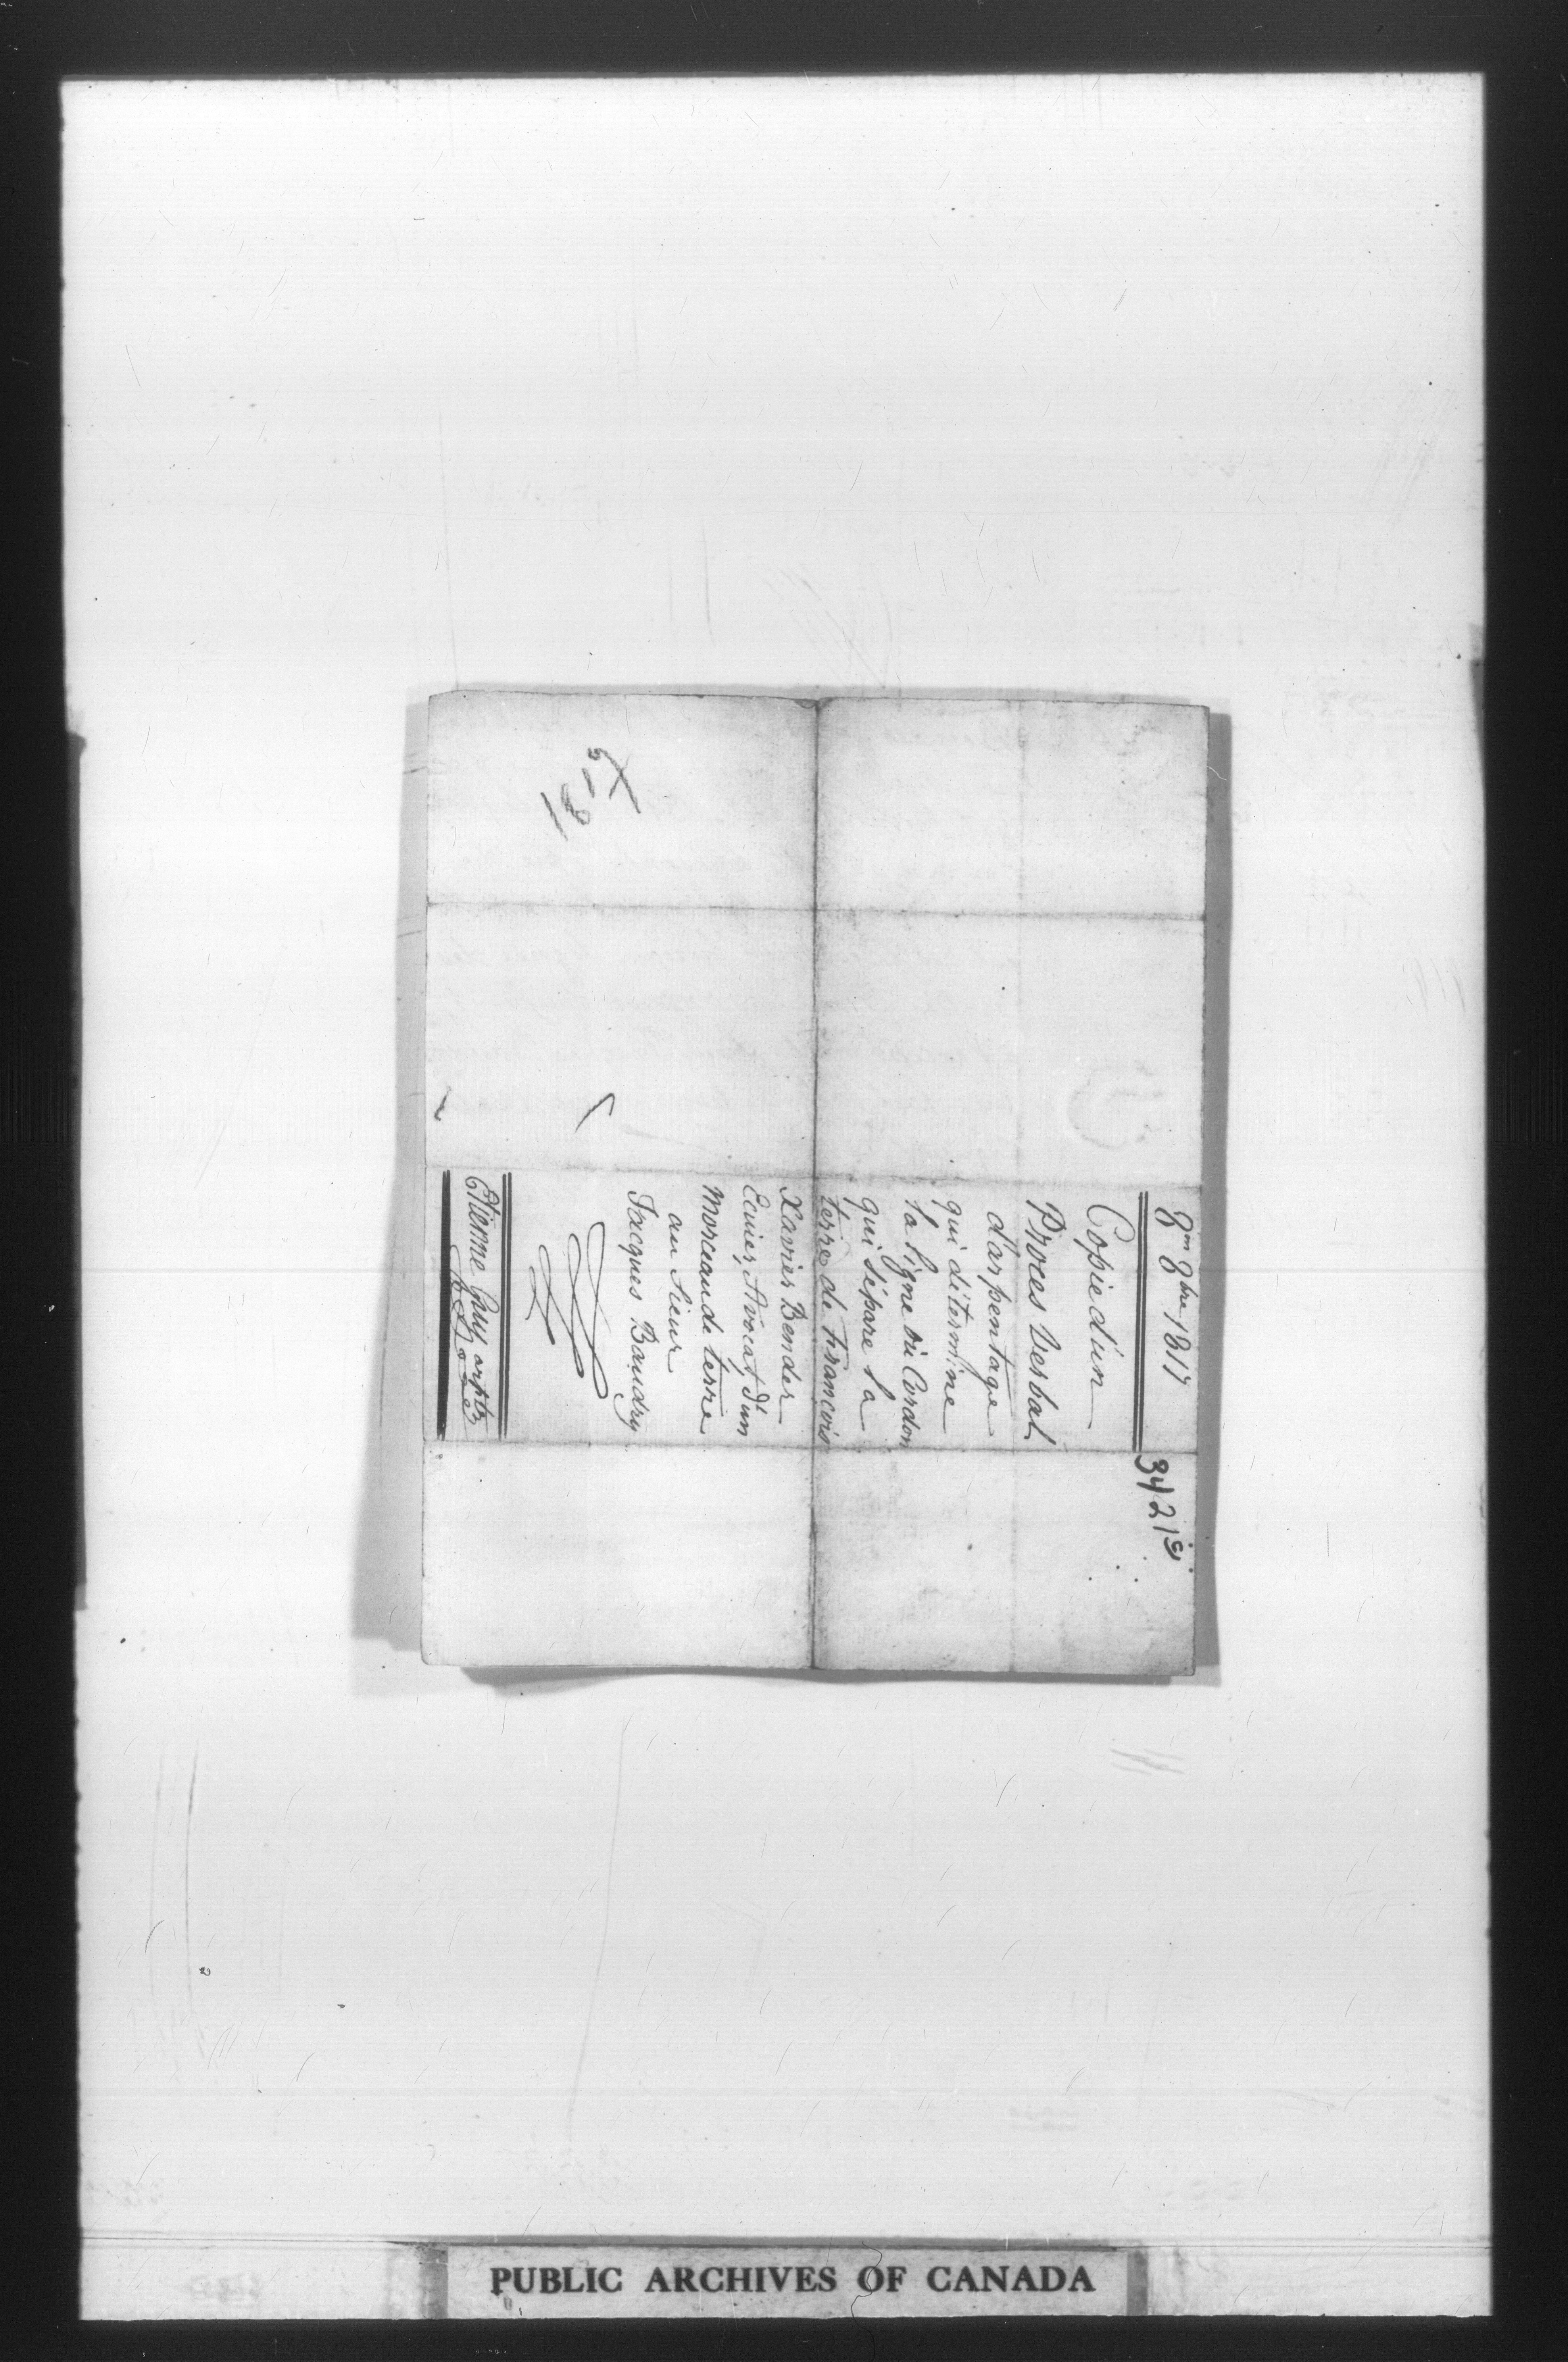 8me 8bre 1817
Copie d'un
Proces Verbal
d'arpentage
qui détermine
la ligne où Cordon
qui sépare la
terre de François
Xavier Bender
Ecuier, Avocat, d'un
Morceau de terre
au Sieur
Jacques Baudry
Etienne Guy
3421
PUBLIC ARCHIVES OF CANADA